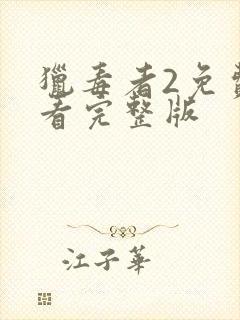 獵毒者2免費
看完整版
江子華